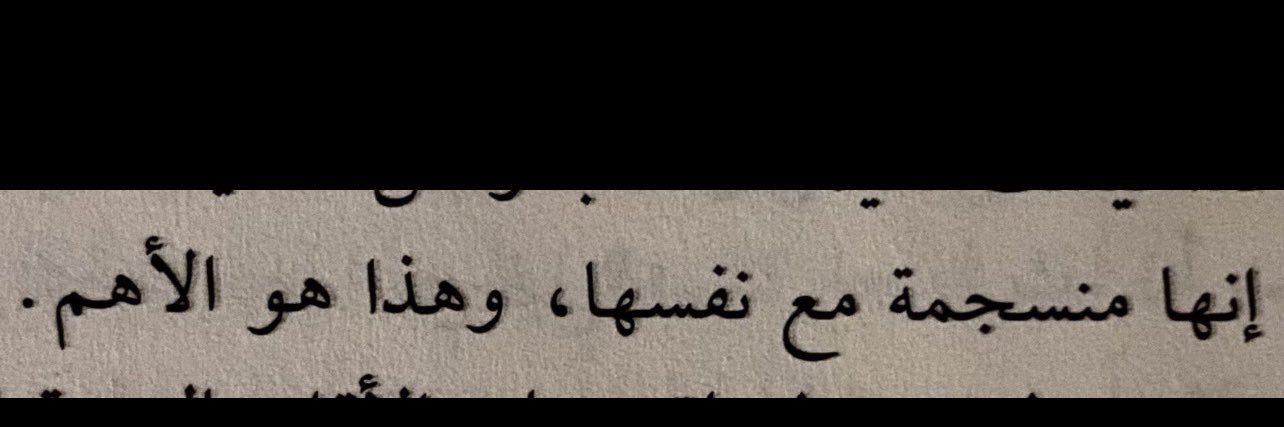 إنها منسجمة مع نفسها، وهذا هو الأهم.